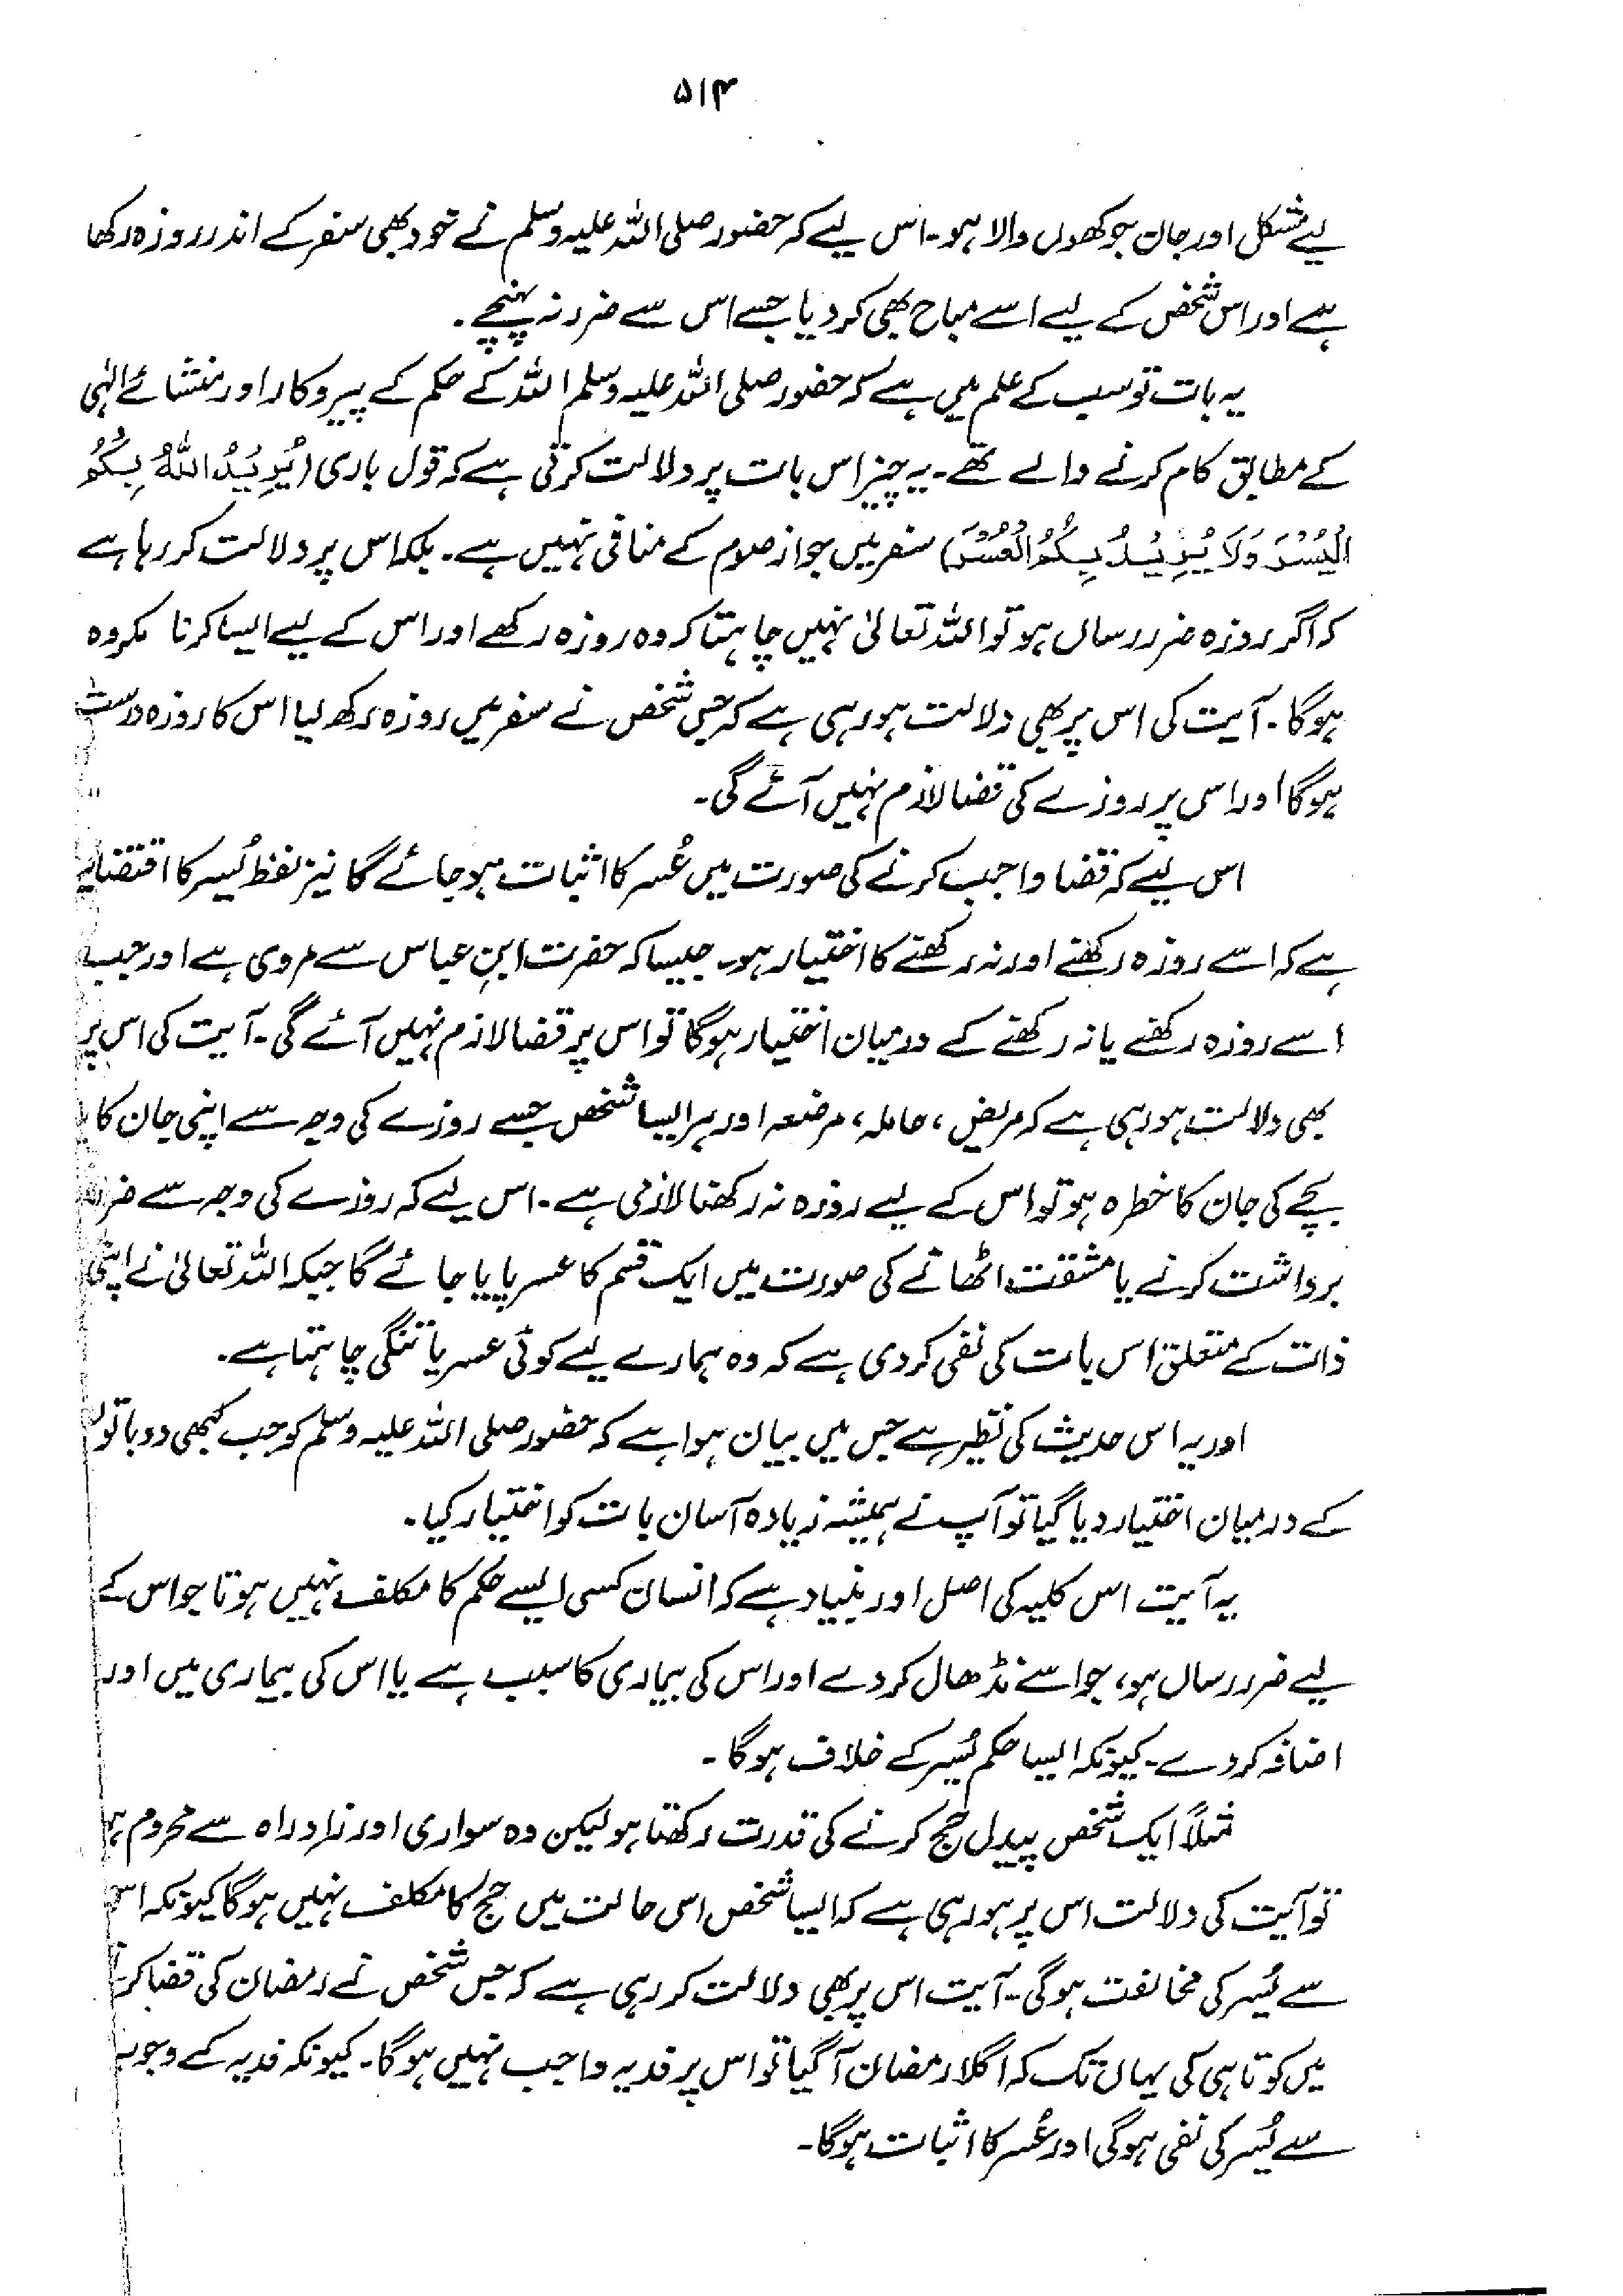 ۵۱۴
لیے مشکل اور جان جوکھوں والا ہو۔ اس لیے کہ حضور صلی اللہ علیہ وسلم نے خود بھی سفر کے اندر روزہ رکھا
ہے اور اس شخص کے لیے اسے مباح بھی کر دیا جسے اس سے ضرر نہ پہنچے۔
یہ بات تو سب کے علم میں ہے کہ حضور صلی اللہ علیہ وسلم اللہ کے حکم کے پیروکار اور منشائے الٰہی
کے مطابق کام کرنے والے تھے۔ یہ چیز اس بات پر دلالت کرتی ہے کہ قول باری (یُرِیْدُ اللّٰہُ بِکُمُ
الْیُسْرَ وَلَا یُرِیْدُ بِکُمُ الْعُسْرَ) سفر میں جواز صوم کے منافی نہیں ہے۔ بلکہ اس پر دلالت کر رہا ہے
کہ اگر روزہ ضرر رساں ہو تو اللہ تعالیٰ نہیں چاہتا کہ وہ روزہ رکھے اور اس کے لیے ایسا کرنا مکروہ
ہوگا۔ آیت کی اس پر بھی دلالت ہو رہی ہے کہ جس شخص نے سفر میں روزہ رکھ لیا اس کا روزہ درست
ہوگا اور اس پر روزے کی قضا لازم نہیں آئے گی۔
اس لیے کہ قضا واجب کرنے کی صورت میں عُسر کا اثبات ہو جائے گا نیز لفظ یُسر کا اقتضا یہ
ہے کہ اسے روزہ رکھنے اور نہ رکھنے کا اختیار ہو۔ جیسا کہ حضرت ابنِ عباس سے مروی ہے اور جب
اسے روزہ رکھنے یا نہ رکھنے کے درمیان اختیار ہوگا تو اس پر قضا لازم نہیں آئے گی۔ آیت کی اس پر
بھی دلالت ہو رہی ہے کہ مریض، حاملہ، مرضعہ اور ہر ایسا شخص جسے روزے کی وجہ سے اپنی جان کا
بچے کی جان کا خطرہ ہو تو اس کے لیے روزہ نہ رکھنا لازمی ہے۔ اس لیے کہ روزے کی وجہ سے ضرر
برداشت کرنے یا مشقت اٹھانے کی صورت میں ایک قسم کا عسر پایا جائے گا جبکہ اللہ تعالیٰ نے اپنی
ذات کے متعلق اس بات کی نفی کر دی ہے کہ وہ ہمارے لیے کوئی عسر یا تنگی چاہتا ہے۔
اور یہ اس حدیث کی نظیر ہے جس میں بیان ہوا ہے کہ حضور صلی اللہ علیہ وسلم کو جب کبھی دو باتوں
کے درمیان اختیار دیا گیا تو آپ نے ہمیشہ زیادہ آسان بات کو اختیار کیا۔
یہ آیت اس کلیہ کی اصل اور بنیاد ہے کہ انسان کسی ایسے حکم کا مکلف نہیں ہوتا جو اس کے
لیے ضرر رساں ہو، جو اسے نڈھال کر دے اور اس کی بیماری کا سبب بنے یا اس کی بیماری میں اور
اضافہ کر دے۔ کیونکہ ایسا حکم یُسر کے خلاف ہوگا۔
مثلاً ایک شخص پیدل حج کرنے کی قدرت رکھتا ہو لیکن وہ سواری اور زاد راہ سے محروم ہو
تو آیت کی دلالت اس پر ہو رہی ہے کہ ایسا شخص اس حالت میں حج کا مکلف نہیں ہوگا کیونکہ اس
سے یُسر کی مخالفت ہوگی۔ آیت اس پر بھی دلالت کر رہی ہے کہ جس شخص نے رمضان کی قضا کرنے
میں کوتاہی کی یہاں تک کہ اگلا رمضان آگیا تو اس پر فدیہ واجب نہیں ہوگا۔ کیونکہ فدیہ کے وجوب
سے یُسر کی نفی ہوگی اور عُسر کا اثبات ہوگا۔